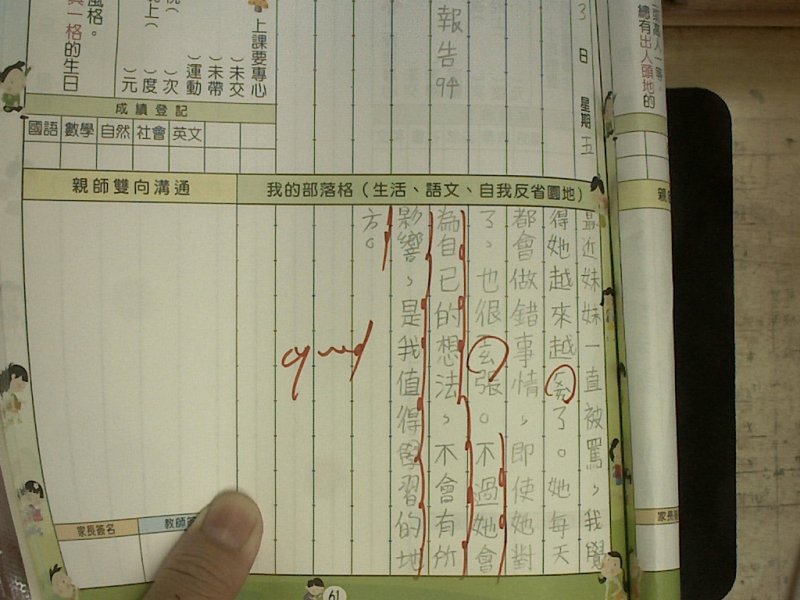 總有出人頭地的
3日 星期五
報告94
上課要專心
）未交
）未帶
）運動
）次
）度
）元
風格。
一格的生日
成績登記
國語 數學 自然 社會 英文
我的部落格（生活、語文、自我反省園地）
親師雙向溝通
最近妹妹一直被罵，我覺
得她越來越了。她每天
都會做錯事情，即使她對
了，也很玄張。不過她會
為自己的想法，不會有所
影響，是我值得學習的地
方。
good
家長簽名
教師簽
61
家長簽